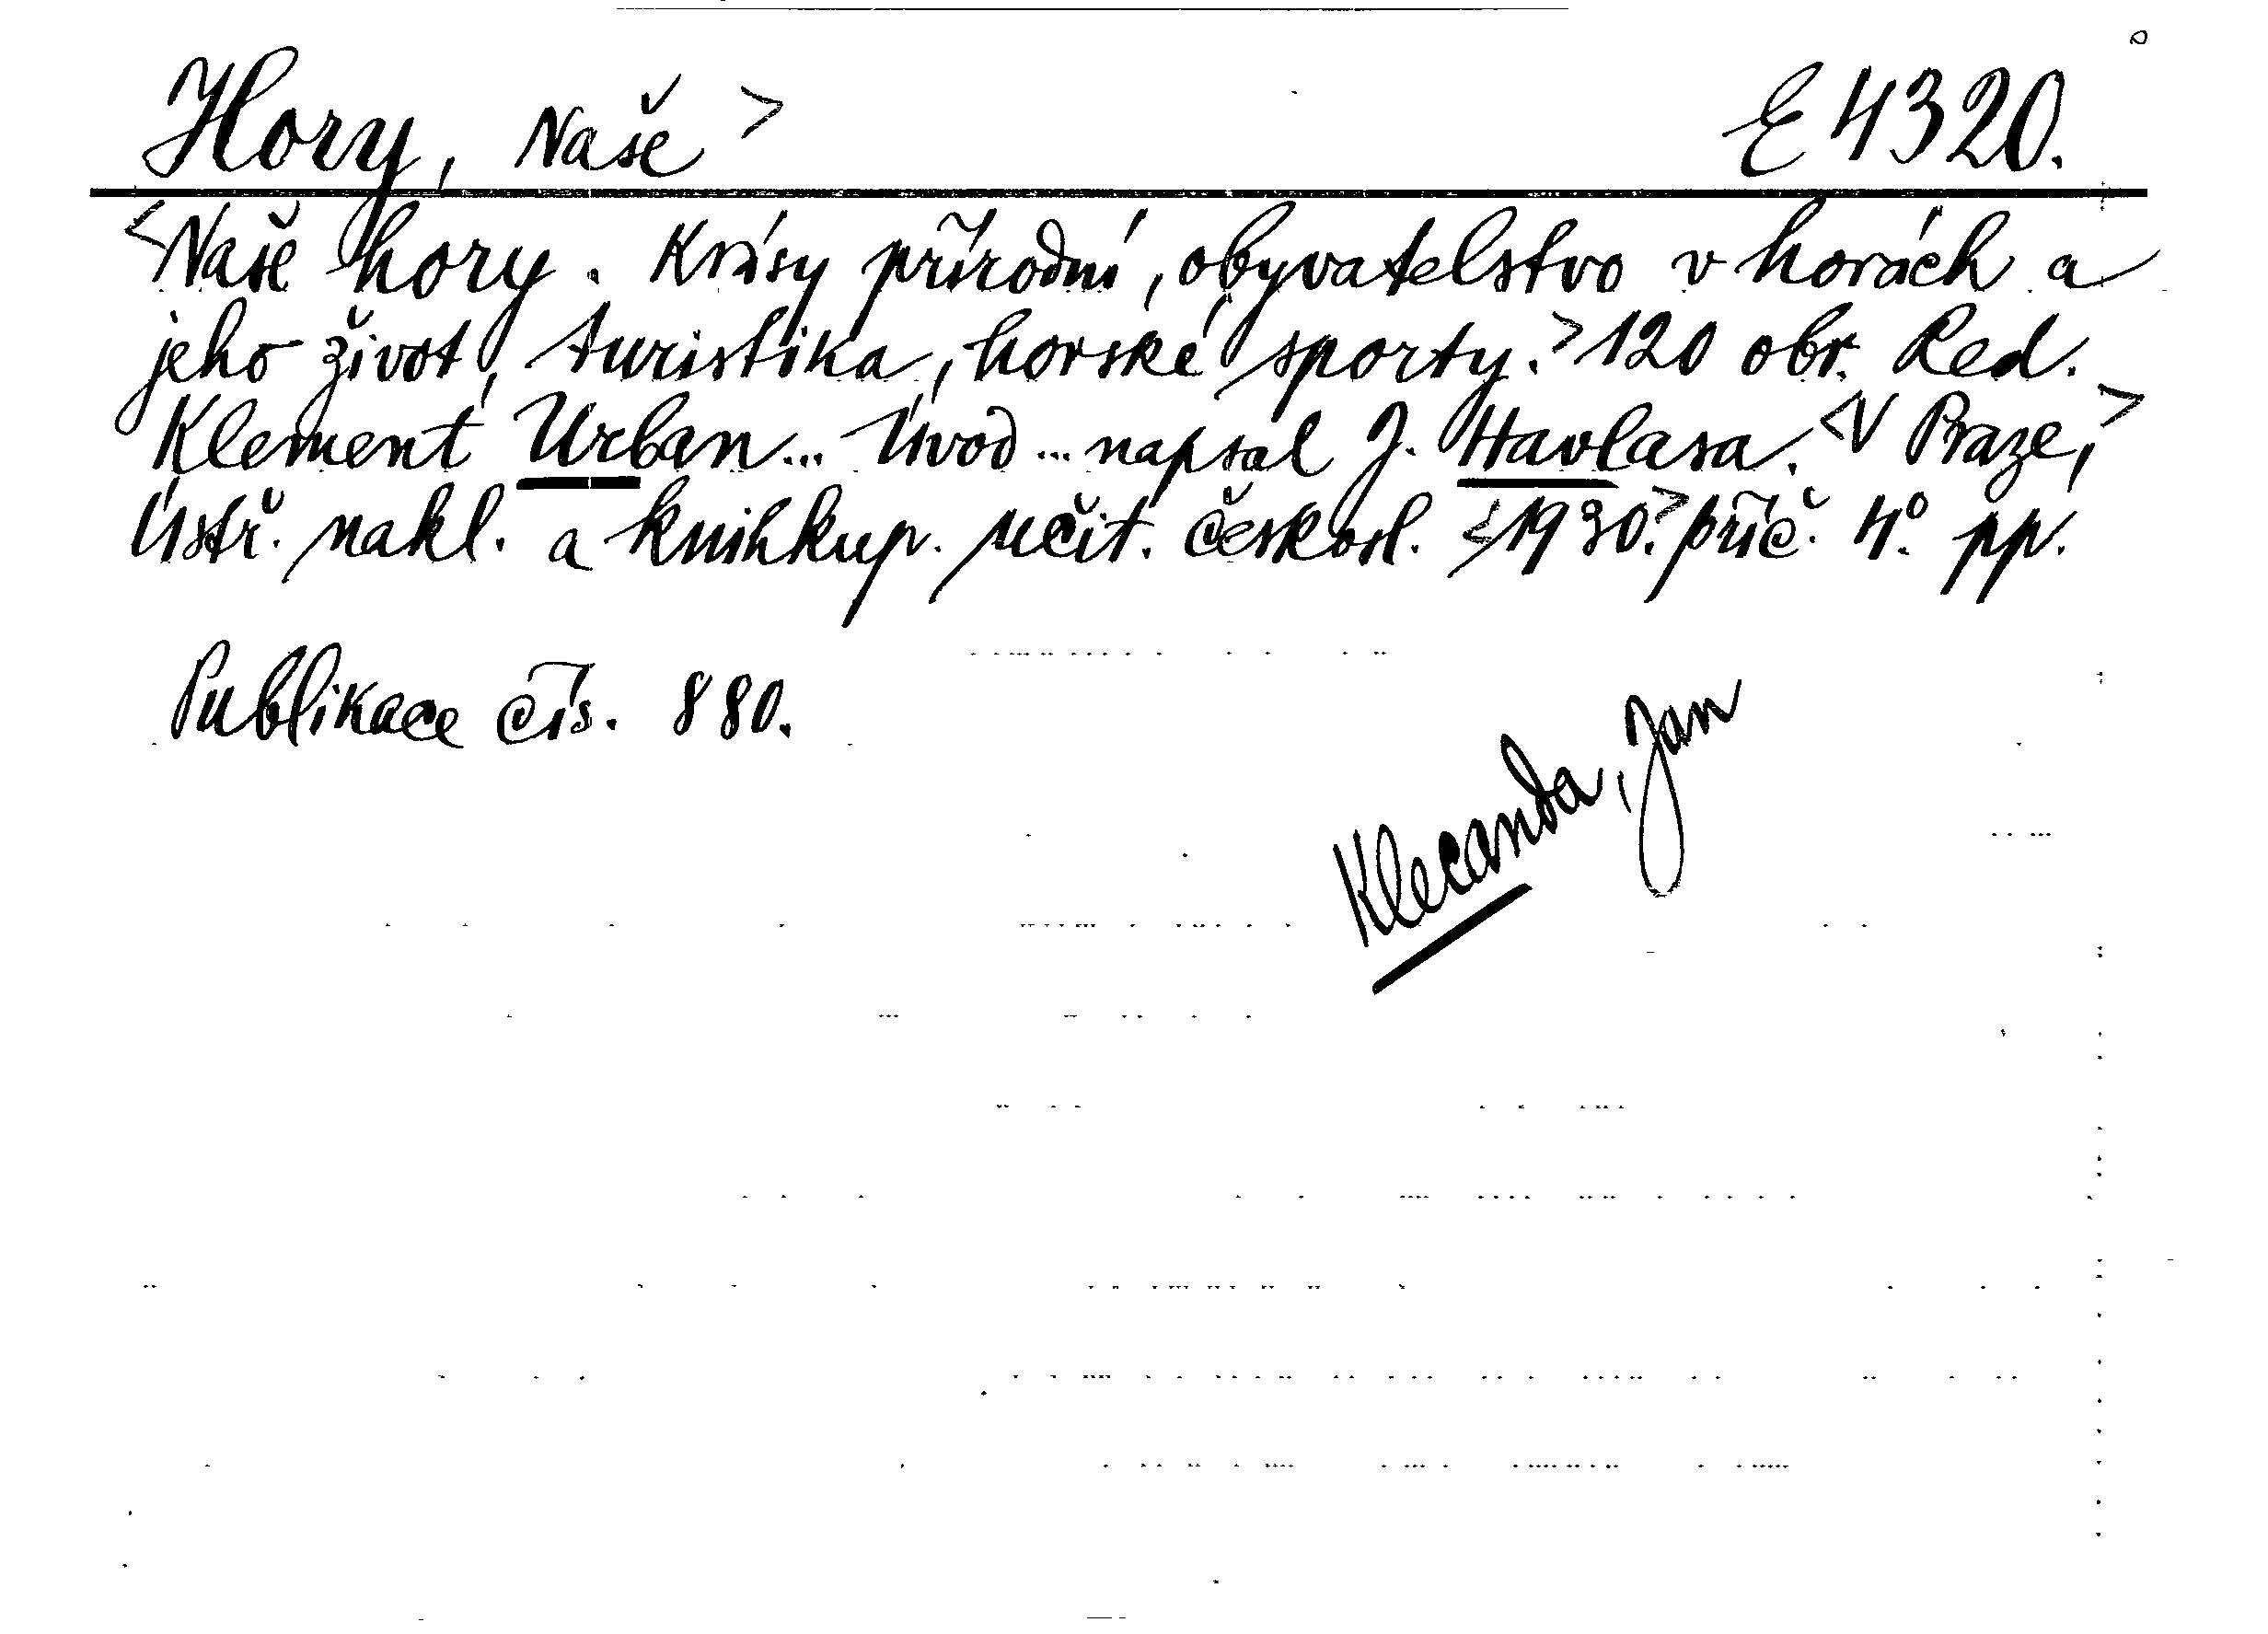 Hory, Naše > E 4320.
<Naše hory. Krásy přírodní, obyvatelstvo v horách a
jeho život, turistika, horské sporty.> 120 obr. Red.
Klement Urban... Úvod... napsal J. Havlasa. <V Praze,>
Ústř. nakl. a knihkup. učit. českosl. <1930.> příč. 4°. pp.
Publikace čís. 880.
Klecanda, Jan